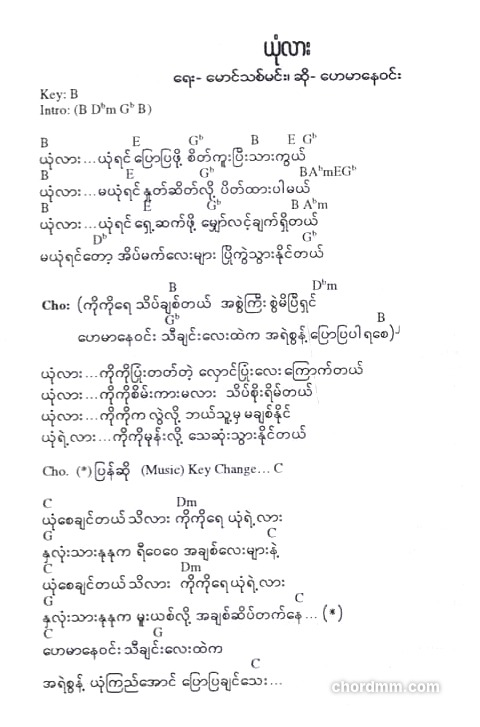 ယုံလား
ရေး- မောင်သစ်မင်း၊ ဆို- ဟေမာနေဝင်း
Key: B
Intro: (B Dᵇm Gᵇ B)
B E Gᵇ B E Gᵇ
ယုံလား…ယုံရင် ပြောပြဖို့ စိတ်ကူးပြီးသားကွယ်
B E Gᵇ BAᵇmEGᵇ
ယုံလား…မယုံရင် နှုတ်ဆိတ်လို့ ပိတ်ထားပါမယ်
B E Gᵇ B Aᵇm
ယုံလား…ယုံရင် ရှေ့ဆက်ဖို့ မျှော်လင့်ချက်ရှိတယ်
Dᵇ Gᵇ
မယုံရင်တော့ အိပ်မက်လေးများ ပြိုကွဲသွားနိုင်တယ်
B Dᵇm
Cho: (ကိုကိုရေ သိပ်ချစ်တယ် အစွဲကြီး စွဲမိပြီရှင်
Gᵇ B
ဟေမာနေဝင်း သီချင်းလေးထဲက အရဲစွန့် ပြောပြပါရစေ)
ယုံလား…ကိုကိုပြုံးတတ်တဲ့ လှောင်ပြုံးလေး ကြောက်တယ်
ယုံလား…ကိုကိုစိမ်းကားမလား သိပ်စိုးရိမ်တယ်
ယုံလား…ကိုကိုက လွဲလို့ ဘယ်သူ့မှ မချစ်နိုင်
ယုံရဲ့လား…ကိုကိုမုန်းလို့ သေဆုံးသွားနိုင်တယ်
Cho. (*) ပြန်ဆို (Music) Key Change… C
C Dm
ယုံစေချင်တယ် သိလား ကိုကိုရေ ယုံရဲ့လား
G C
နှလုံးသားနုနုက ရီဝေဝေ အချစ်လေးများနဲ့
C Dm
ယုံစေချင်တယ် သိလား ကိုကိုရေယုံရဲ့လား
G C
နှလုံးသားနုနုက မူးယစ်လို့ အချစ်ဆိပ်တက်နေ… (*)
C G
ဟေမာနေဝင်း သီချင်းလေးထဲက
C
အရဲစွန့် ယုံကြည်အောင် ပြောပြချင်သေး…
chordmm.com